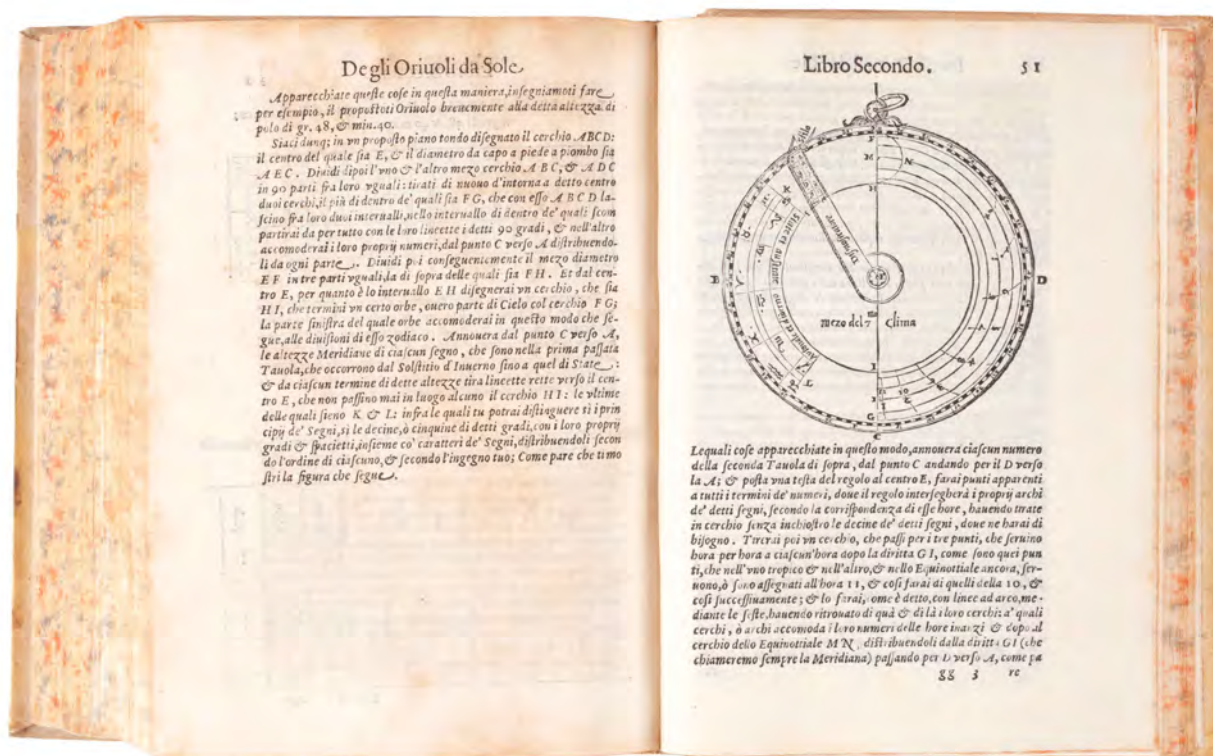 Degli Oriuoli da Sole
Apparecchiate queste cose in questa maniera, insegniamoti fare
per esempio, il propostoti Oriuolo breuemente alla detta altezza di
polo di gr. 48, & min. 40.
Siaci dunq; in vn proposto piano tondo disegnato il cerchio ABCD:
il centro del quale sia E, & il diametro da capo a piede a piombo sia
A E C. Diuidi dipoi l'vno & l'altro mezo cerchio A B C, & A D C
in 90 parti fra loro vguali: tirati di nuouo d'intorno a detto centro
duoi cerchi, il più di dentro de' quali sia F G, che con esso A B C D la-
scino fra loro duoi interualli, nello interuallo di dentro de' quali scom
partirai da per tutto con le loro lineette i detti 90 gradi, & nell'altro
accomoderai i loro proprij numeri, dal punto C verso A distribuendo-
li da ogni parte. Diuidi poi conseguentemente il mezo diametro
E F in tre parti vguali, la di sopra delle quali sia F H. Et dal cen-
tro E, per quanto è lo interuallo E H disegnerai vn cerchio, che sia
H I, che termini vn certo orbe, ouero parte di Cielo col cerchio F G;
la parte sinistra del quale orbe accomoderai in questo modo che se-
gue, alle diuisioni di esso zodiaco. Annouera dal punto C verso A,
le altezze Meridiane di ciascun segno, che sono nella prima passata
Tauola, che occorrono dal Solstitio d'Inuerno sino a quel di State:
& da ciascun termine di dette altezze tira lineette rette verso il cen-
tro E, che non passino mai in luogo alcuno il cerchio H I: le vltime
delle quali sieno K & L: infra le quali tu potrai distinguere sì i prin
cipij de' Segni, sì le decine, ò cinquine di detti gradi, con i loro proprij
gradi & spacietti, insieme co' caratteri de' Segni, distribuendoli secon
do l'ordine di ciascuno, & secondo l'ingegno tuo; Come pare che ti mo
stri la figura che segue.
Libro Secondo. 51
F
M N
H
B
E
D
mezo del 7 Clima
I
G
C
Lequali cose apparecchiate in questo modo, annouera ciascun numero
della seconda Tauola di sopra, dal punto C andando per il D verso
la A; & posta vna testa del regolo al centro E, farai punti apparenti
a tutti i termini de' numeri, doue il regolo intersegherà i proprij archi
de' detti segni, secondo la corrispondenza di esse hore, hauendo tirate
in cerchio senza inchiostro le decine de' detti segni, doue ne harai di
bisogno. Tirerai poi vn cerchio, che passi per i tre punti, che seruino
hora per hora a ciascun'hora dopo la diritta G I, come sono quei pun
ti, che nell'vno tropico & nell'altro, & nello Equinottiale ancora, ser-
uono, ò sono assegnati all'hora 11, & così farai di quelli della 10, &
così successiuamente; & lo farai, come è detto, con linee ad arco, me-
diante le seste, hauendo ritrouato di quà & di là i loro cerchi: a' quali
cerchi, ò archi accomoda i loro numeri delle hore inanzi & dopo al
cerchio dello Equinottiale M N, distribuendoli dalla diritta G I (che
chiameremo sempre la Meridiana) passando per D verso A, come pa
gg 3 re